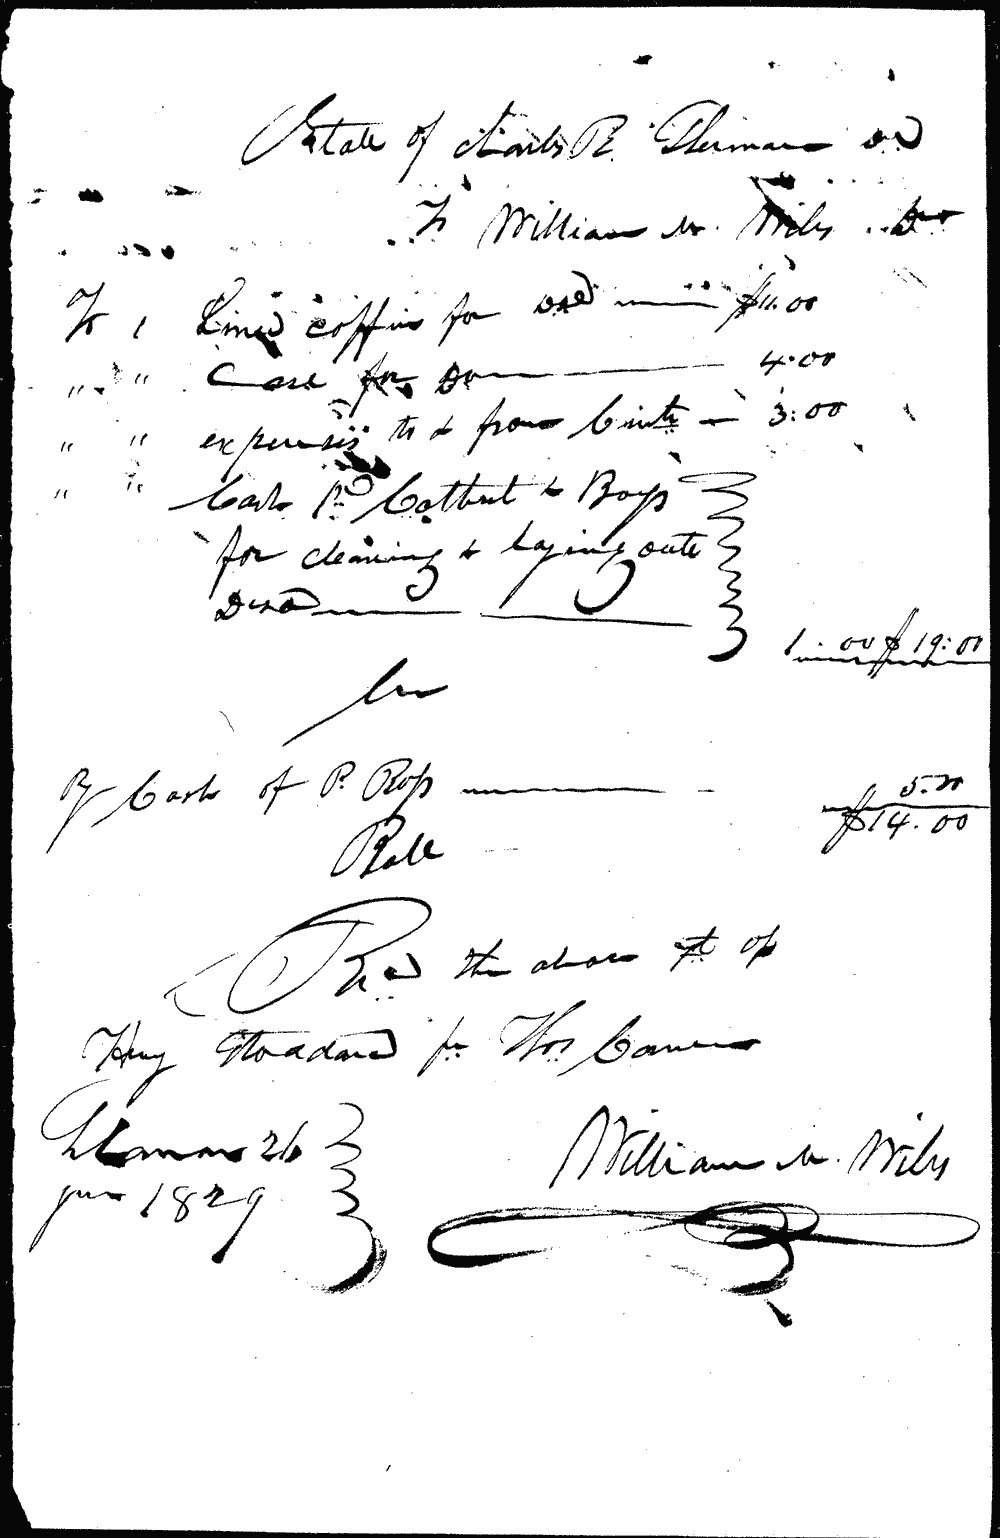 Estate of Charles R. Sherman decd
To William M. Wiles Dr
To 1 Lined coffin for Decd $11.00
" " Case for Do 4.00
" " expenses to & from Cinti 3:00
" " Cash Pd Colbert & Boys
for cleaning & laying oute
Decd 1.00 $19:00
Cr
By Cash of P. Ross 5.00
Balle $14.00
Recd the above of
Heny Stoddard for Thos
Lebanon 26 William M. Wiles
1829